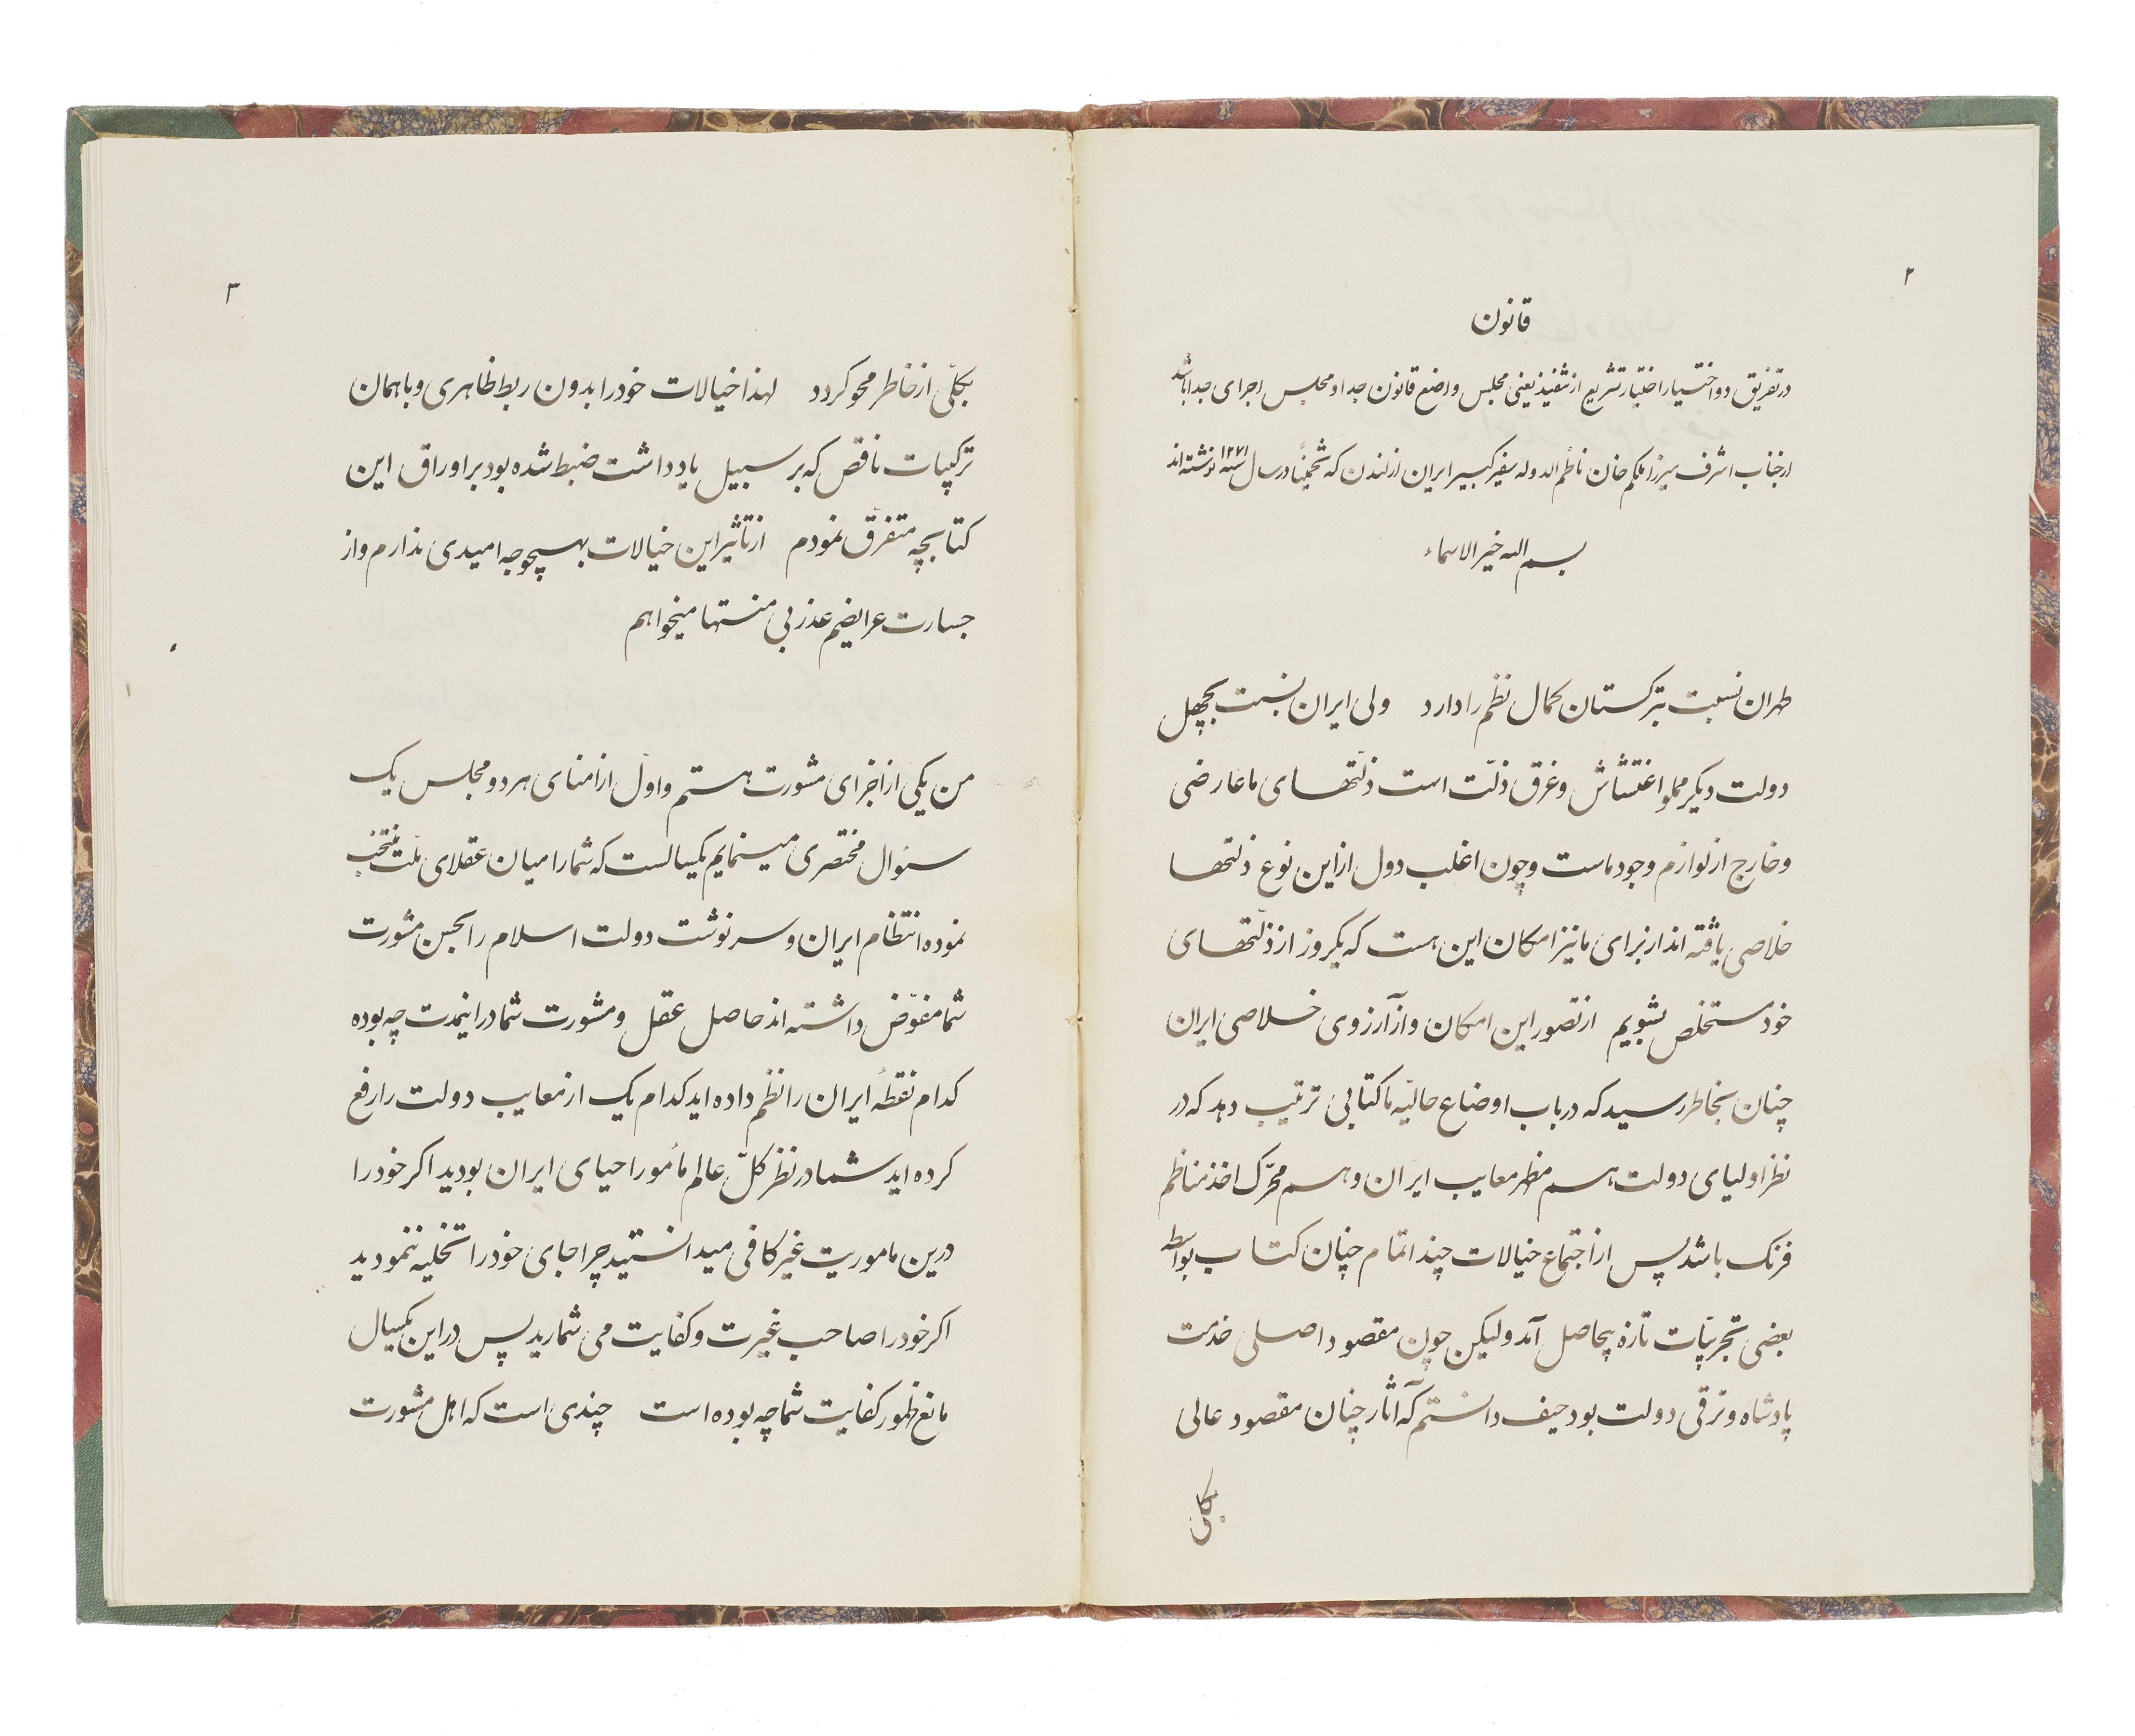 ۲
قانون
در تفریق دو اختیار اختیار تشریع از تنفیذ یعنی مجلس واضع قانون جدا و مجلس اجرای جدا باشد
از جناب اشرف میرزا ملکم خان ناظم الدوله سفیر کبیر ایران از لندن که تخمیناً در سال سنه ۱۲۷۱ نوشته اند
بسم الله خیر الاسماء
طهران نسبت بترکستان کمال نظم را دارد ولی ایران نسبت بچهل
دولت دیکر مملو اغتشاش و غرق ذلّت است ذلّتهای ما عارضی
و خارج از لوازم وجود ماست و چون اغلب دول از این نوع ذلتها
خلاصی یافته اند از برای ما نیز امکان این هست که یکروز از ذلّتهای
خود مستخلص بشویم از تصور این امکان و از آرزوی خلاصی ایران
چنان بخاطر رسید که در باب اوضاع حالیّه ما کتابی ترتیب دهد که در
نظر اولیای دولت هم مظهر معایب ایران و هم محرّک اخذ مناظم
فرنک باشد پس از اجتماع خیالات چند اتمام چنان کتاب بواسطه
بعضی تجربیّات تازه بیحاصل آمد ولیکن چون مقصود اصلی خدمت
پادشاه و ترقی دولت بود حیف دانستم که آثار چنان مقصود عالی
بکلی
۳
بکلّی از خاطر محو کردد لهذا خیالات خود را بدون ربط ظاهری و با همان
ترکیبات ناقص که بر سبیل یادداشت ضبط شده بود بر اوراق این
کتابچه متفرّق نمودم از تأثیر این خیالات بهیچوجه امیدی ندارم و از
جسارت عرایضم عذر بی منتها میخواهم
من یکی از اجزای مشورت هستم و اوّل از امنای هر دو مجلس یک
سئوال مختصری مینمایم یکسالست که شما را میان عقلای ملّت منتخب
نموده انتظام ایران و سرنوشت دولت اسلام را بحسن مشورت
شما مفوّض داشته اند حاصل عقل و مشورت شما در اینمدت چه بوده
کدام نقطهٔ ایران را نظم داده اید کدام یک از معایب دولت را رفع
کرده اید شما در نظر کلّ عالم مأمور احیای ایران بودید اکر خود را
درین ماموریت غیر کافی میدانستید چرا جای خود را تخلیه ننمودید
اکر خود را صاحب غیرت و کفایت می شمارید پس در این یکسال
مانع ظهور کفایت شما چه بوده است چندی است که اهل مشورت